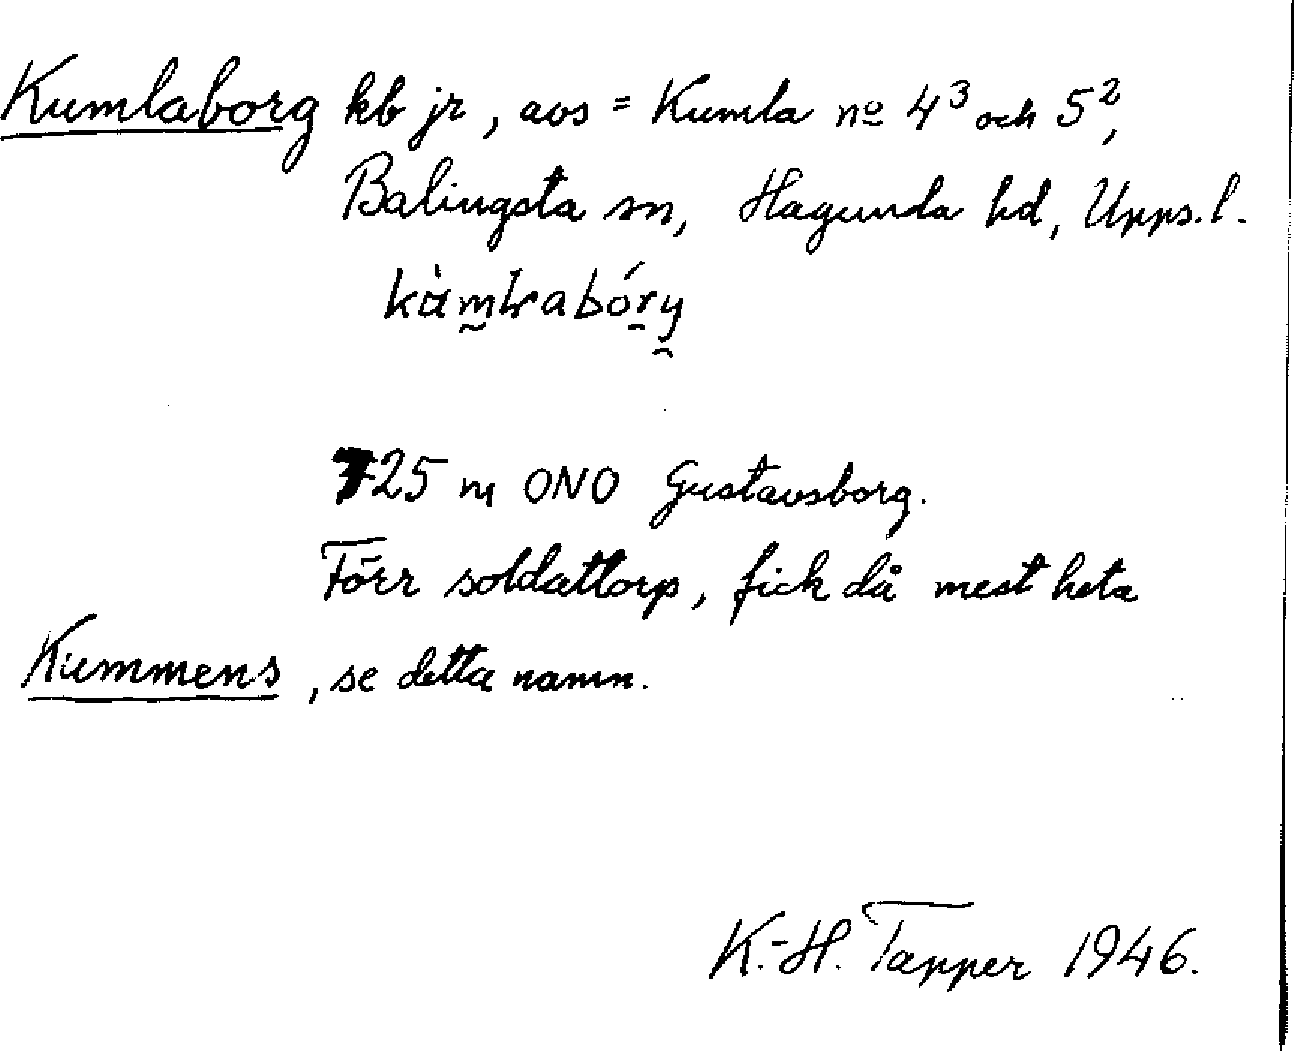 Kumlaborg kb jr, avs = Kumla nº 4³ och 5²,
Balingsta sn, Hagunda hd, Upps. l.
725 m ONO Gustavsborg.
Förr soldattorp, fick då mest heta
Kummens, se detta namn.
K.-H. Tapper 1946.